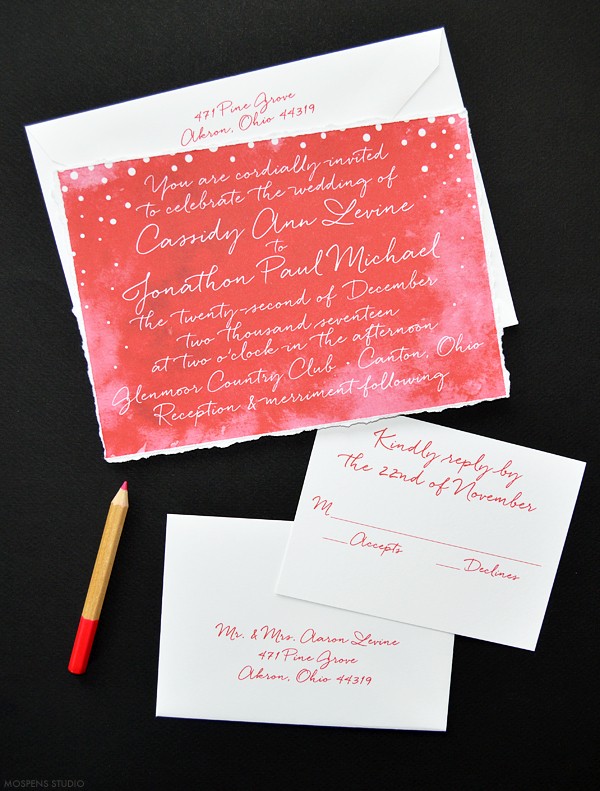 471 Pine Grove
Akron, Ohio 44319
You are cordially invited
to celebrate the wedding of
Cassidy Ann Levine
to
Jonathon Paul Michael
the twenty-second of December
two thousand seventeen
at two o'clock in the afternoon
Glenmoor Country Club · Canton, Ohio
Reception & merriment following
Kindly reply by
the 22nd of November
M
Accepts
Declines
Mr. & Mrs. Aaron Levine
471 Pine Grove
Akron, Ohio 44319
MOSPENS STUDIO